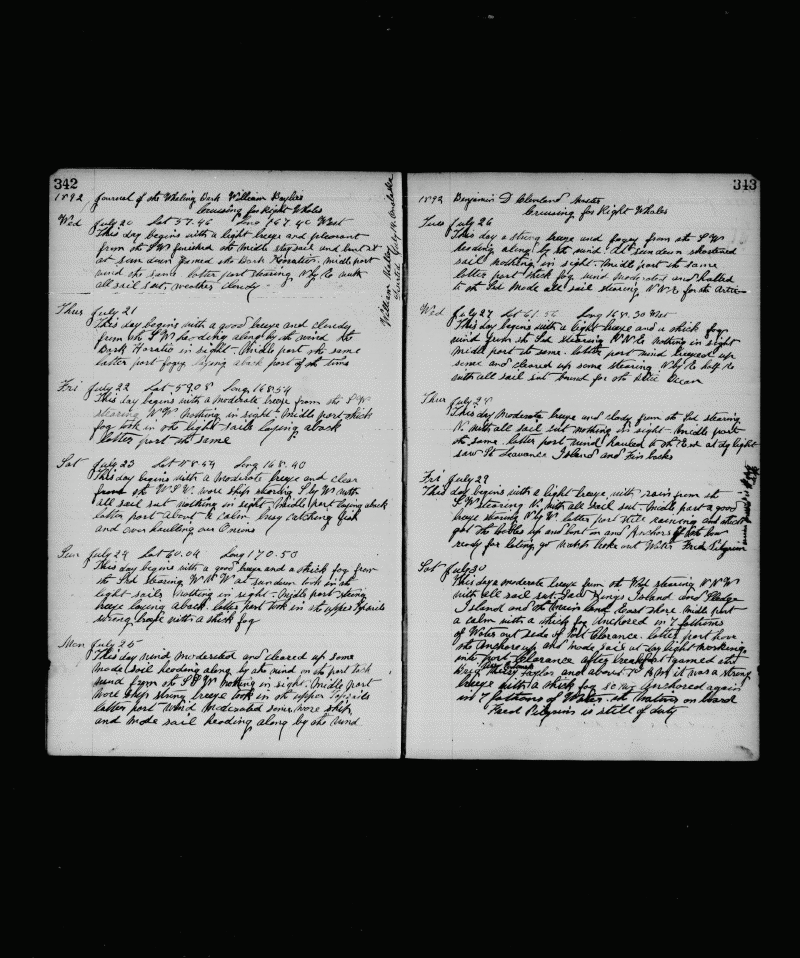 342
1892 Journal of the Whaling Bark William Baylies
Cruising for Right Whales
Wed July 20 Lat 57.46 Long 167.40 West
This day begins with a light breeze and pleasant
from the SW finished the middle stay sail and bent it
at sun down gamed the Bark Horatio. middle part
wind the same latter part stearing N by E with
all sail set weather cloudy
Thus July 21
This day begins with a good breeze and cloudy
from the SW heading along by the wind the
Bark Horatio in sight. Middle part the same
latter part foggy laying aback part of the time
Fri July 22 Lat 59.08 Long 168.54
This day begins with a moderate breeze from the SW
stearing nothing in sight. Middle part thick
fog took in the light sails laying aback
latter part the same
Sat July 23 Lat Long 168.40
This day begins with a moderate breeze and clear
from the WSW wore ship stearing S by W with
all sail set nothing in sight. Middle part laying aback
latter part about a calm busy catching fish
and overhauling our Onions
Sun July 24 Lat 60.04 Long 170.50
This day begins with a good breeze and a thick fog from
the Sd stearing WNW at sundown took in the
light sails nothing in sight. Middle part strong
breeze laying aback. latter part took in the upper topsails
strong breeze with a thick fog
Mon July 25
This day wind moderated and cleared up some
made sail heading along by the wind on the port tack
wind from the nothing in sight. Middle part
wore ship strong breeze took in the upper Topsails
latter part wind moderated some wore ship
and made sail heading along by the wind
William
July
343
1892 Benjamin D Cleveland Master
Cruising for Right Whales
Tues July 26
This day a strong breeze and foggy from the SW
heading along by the wind. At sun down shortened
sail nothing in sight. Middle part the same
latter part thick fog wind moderated and halled
to the Sd made all sail stearing NNE for the Artic
Wed July 27 Lat 61.56 Long 168.30 West
This day begins with a light breeze and a thick fog
wind from the Sd stearing NNE nothing in sight
middle part the same. latter part wind breezed up
some and cleared up some stearing N by E half E
with all sail set bound for the Artic Ocean
Thur July 28
This day moderate breeze and clody from the Sd stearing
N. with all sail set nothing in sight. Middle part
the same latter part wind hauled to the Ed at day light
saw St Lawrance Island and Fin backs
Fri July 29
This day begins with a light breeze with rain from the
SW stearing N. with all sail set. Middle part a good
breeze stearing N by W. latter part still raining and thick
got the cables up and bent on and Anchors
ready for leting go Fred Pilgrim
Sat July 30
This day a moderate breeze from the stearing NNW
with all sail set. Saw Kings Island and Sledge
Island and the main land East shore. Middle part
a calm with a thick fog Anchored in 7 fathoms
of Water out side of Port Clarance. latter part hove
the Anchor up and made sail at day light working
into Port Clarance after breakfast gamed the
Bark Taylor and about it was a strong
breeze with a thick fog so we Anchored again
in 7 fathoms of Water on board
Fred Pilgrim is still of duty